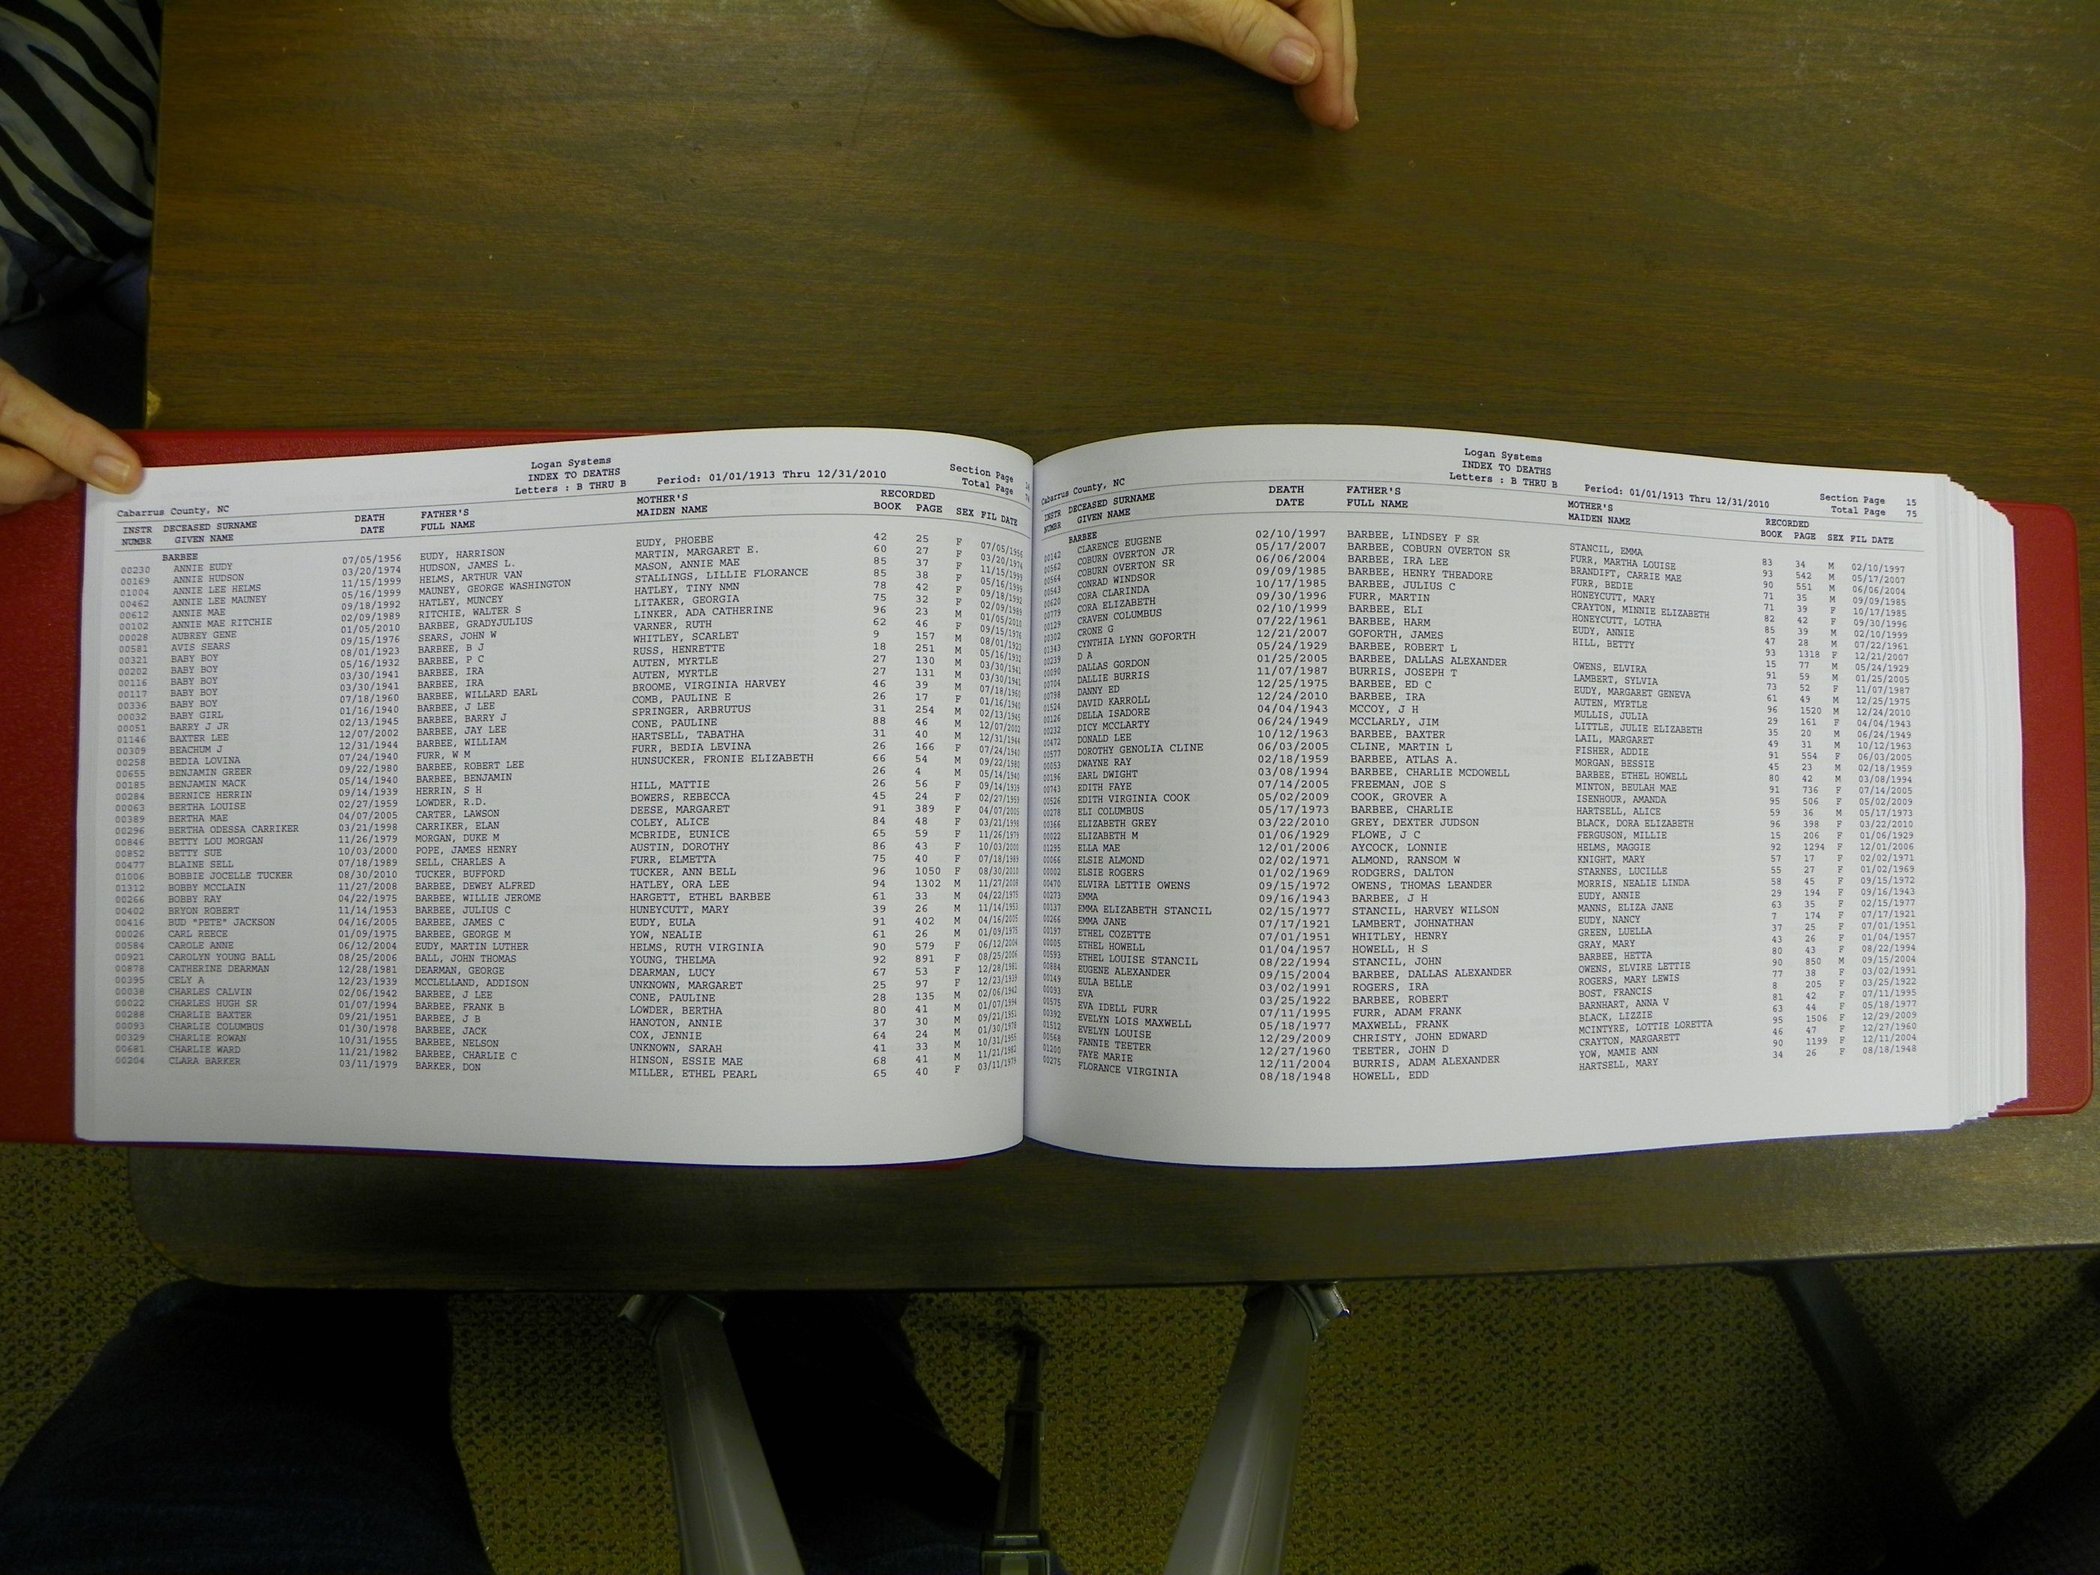 Logan Systems
INDEX TO DEATHS
Letters : B THRU B Period: 01/01/1913 Thru 12/31/2010 Section Page
Total Page
Cabarrus County, NC
INSTR NUMBR DECEASED SURNAME GIVEN NAME DEATH DATE FATHER'S FULL NAME MOTHER'S MAIDEN NAME RECORDED BOOK PAGE SEX FIL DATE
BARBEE
00230 ANNIE EUDY 07/05/1956 EUDY, HARRISON EUDY, PHOEBE 42 25 F 07/05/1956
00169 ANNIE HUDSON 03/20/1974 HUDSON, JAMES L. MARTIN, MARGARET E. 60 27 F 03/20/1974
01004 ANNIE LEE HELMS 11/15/1999 HELMS, ARTHUR VAN MASON, ANNIE MAE 85 37 F 11/15/1999
00462 ANNIE LEE MAUNEY 05/16/1999 MAUNEY, GEORGE WASHINGTON STALLINGS, LILLIE FLORANCE 85 38 F 05/16/1999
00612 ANNIE MAE 09/18/1992 HATLEY, MUNCEY HATLEY, TINY NMN 78 42 F 09/18/1992
00102 ANNIE MAE RITCHIE 02/09/1989 RITCHIE, WALTER S LITAKER, GEORGIA 75 32 F 02/09/1989
00028 AUBREY GENE 01/05/2010 BARBEE, GRADYJULIUS LINKER, ADA CATHERINE 96 23 M 01/05/2010
00581 AVIS SEARS 09/15/1976 SEARS, JOHN W VARNER, RUTH 62 46 F 09/15/1976
00321 BABY BOY 08/01/1923 BARBEE, B J WHITLEY, SCARLET 9 157 M 08/01/1923
00202 BABY BOY 05/16/1932 BARBEE, P C RUSS, HENRETTE 18 251 M 05/16/1932
00116 BABY BOY 03/30/1941 BARBEE, IRA AUTEN, MYRTLE 27 130 M 03/30/1941
00117 BABY BOY 03/30/1941 BARBEE, IRA AUTEN, MYRTLE 27 131 M 03/30/1941
00336 BABY BOY 07/18/1960 BARBEE, WILLARD EARL BROOME, VIRGINIA HARVEY 46 39 M 07/18/1960
00032 BABY GIRL 01/16/1940 BARBEE, J LEE COMB, PAULINE E 26 17 F 01/16/1940
00051 BARRY J JR 02/13/1945 BARBEE, BARRY J SPRINGER, ARBRUTUS 31 254 M 02/13/1945
01146 BAXTER LEE 12/07/2002 BARBEE, JAY LEE CONE, PAULINE 88 46 M 12/07/2002
00309 BEACHUM J 12/31/1944 BARBEE, WILLIAM HARTSELL, TABATHA 31 40 M 12/31/1944
00258 BEDIA LOVINA 07/24/1940 FURR, W M FURR, BEDIA LEVINA 26 166 F 07/24/1940
00655 BENJAMIN GREER 09/22/1980 BARBEE, ROBERT LEE HUNSUCKER, FRONIE ELIZABETH 66 54 M 09/22/1980
00185 BENJAMIN MACK 05/14/1940 BARBEE, BENJAMIN 26 4 M 05/14/1940
00284 BERNICE HERRIN 09/14/1939 HERRIN, S H HILL, MATTIE 26 56 F 09/14/1939
00063 BERTHA LOUISE 02/27/1959 LOWDER, R.D. BOWERS, REBECCA 45 24 F 02/27/1959
00389 BERTHA MAE 04/07/2005 CARTER, LAWSON DEESE, MARGARET 91 389 F 04/07/2005
00296 BERTHA ODESSA CARRIKER 03/21/1998 CARRIKER, ELAN COLEY, ALICE 84 48 F 03/21/1998
00846 BETTY LOU MORGAN 11/26/1979 MORGAN, DUKE M MCBRIDE, EUNICE 65 59 F 11/26/1979
00852 BETTY SUE 10/03/2000 POPE, JAMES HENRY AUSTIN, DOROTHY 86 43 F 10/03/2000
00477 BLAINE SELL 07/18/1989 SELL, CHARLES A FURR, ELMETTA 75 40 F 07/18/1989
01006 BOBBIE JOCELLE TUCKER 08/30/2010 TUCKER, BUFFORD TUCKER, ANN BELL 96 1050 F 08/30/2010
01312 BOBBY MCCLAIN 11/27/2008 BARBEE, DEWEY ALFRED HATLEY, ORA LEE 94 1302 M 11/27/2008
00266 BOBBY RAY 04/22/1975 BARBEE, WILLIE JEROME HARGETT, ETHEL BARBEE 61 33 M 04/22/1975
00402 BRYON ROBERT 11/14/1953 BARBEE, JULIUS C HUNEYCUTT, MARY 39 26 M 11/14/1953
00416 BUD "PETE" JACKSON 04/16/2005 BARBEE, JAMES C EUDY, EULA 91 402 M 04/16/2005
00026 CARL REECE 01/09/1975 BARBEE, GEORGE M YOW, NEALIE 61 26 M 01/09/1975
00584 CAROLE ANNE 06/12/2004 EUDY, MARTIN LUTHER HELMS, RUTH VIRGINIA 90 579 F 06/12/2004
00921 CAROLYN YOUNG BALL 08/25/2006 BALL, JOHN THOMAS YOUNG, THELMA 92 891 F 08/25/2006
00878 CATHERINE DEARMAN 12/28/1981 DEARMAN, GEORGE DEARMAN, LUCY 67 53 F 12/28/1981
00395 CELY A 12/23/1939 MCCLELLAND, ADDISON UNKNOWN, MARGARET 25 97 F 12/23/1939
00038 CHARLES CALVIN 02/06/1942 BARBEE, J LEE CONE, PAULINE 28 135 M 02/06/1942
00022 CHARLES HUGH SR 01/07/1994 BARBEE, FRANK B LOWDER, BERTHA 80 41 M 01/07/1994
00288 CHARLIE BAXTER 09/21/1951 BARBEE, J B HANOTON, ANNIE 37 30 M 09/21/1951
00093 CHARLIE COLUMBUS 01/30/1978 BARBEE, JACK COX, JENNIE 64 24 M 01/30/1978
00329 CHARLIE ROWAN 10/31/1955 BARBEE, NELSON UNKNOWN, SARAH 41 33 M 10/31/1955
00681 CHARLIE WARD 11/21/1982 BARBEE, CHARLIE C HINSON, ESSIE MAE 68 41 M 11/21/1982
00204 CLARA BARKER 03/11/1979 BARKER, DON MILLER, ETHEL PEARL 65 40 F 03/11/1979
Logan Systems
INDEX TO DEATHS
Letters : B THRU B Period: 01/01/1913 Thru 12/31/2010 Section Page 15
Total Page 75
Cabarrus County, NC
INSTR NUMBR DECEASED SURNAME GIVEN NAME DEATH DATE FATHER'S FULL NAME MOTHER'S MAIDEN NAME RECORDED BOOK PAGE SEX FIL DATE
BARBEE
00142 CLARENCE EUGENE 02/10/1997 BARBEE, LINDSEY F SR STANCIL, EMMA 83 34 M 02/10/1997
00562 COBURN OVERTON JR 05/17/2007 BARBEE, COBURN OVERTON SR FURR, MARTHA LOUISE 93 542 M 05/17/2007
00564 COBURN OVERTON SR 06/06/2004 BARBEE, IRA LEE BRANDIFT, CARRIE MAE 90 551 M 06/06/2004
00543 CONRAD WINDSOR 09/09/1985 BARBEE, HENRY THEADORE FURR, BEDIE 71 35 M 09/09/1985
00620 CORA CLARINDA 10/17/1985 BARBEE, JULIUS C HONEYCUTT, MARY 71 39 F 10/17/1985
00779 CORA ELIZABETH 09/30/1996 FURR, MARTIN CRAYTON, MINNIE ELIZABETH 82 42 F 09/30/1996
00129 CRAVEN COLUMBUS 02/10/1999 BARBEE, ELI HONEYCUTT, LOTHA 85 39 M 02/10/1999
00302 CRONE G 07/22/1961 BARBEE, HARM EUDY, ANNIE 47 28 M 07/22/1961
01343 CYNTHIA LYNN GOFORTH 12/21/2007 GOFORTH, JAMES HILL, BETTY 93 1318 F 12/21/2007
00239 D A 05/24/1929 BARBEE, ROBERT L 15 77 M 05/24/1929
00090 DALLAS GORDON 01/25/2005 BARBEE, DALLAS ALEXANDER OWENS, ELVIRA 91 59 M 01/25/2005
00704 DALLIE BURRIS 11/07/1987 BURRIS, JOSEPH T LAMBERT, SYLVIA 73 52 F 11/07/1987
00798 DANNY ED 12/25/1975 BARBEE, ED C EUDY, MARGARET GENEVA 61 49 M 12/25/1975
01524 DAVID KARROLL 12/24/2010 BARBEE, IRA AUTEN, MYRTLE 96 1520 M 12/24/2010
00126 DELLA ISADORE 04/04/1943 MCCOY, J H MULLIS, JULIA 29 161 F 04/04/1943
00232 DICY MCCLARTY 06/24/1949 MCCLARLY, JIM LITTLE, JULIE ELIZABETH 35 20 M 06/24/1949
00472 DONALD LEE 10/12/1963 BARBEE, BAXTER LAIL, MARGARET 49 31 M 10/12/1963
00577 DOROTHY GENOLIA CLINE 06/03/2005 CLINE, MARTIN L FISHER, ADDIE 91 554 F 06/03/2005
00053 DWAYNE RAY 02/18/1959 BARBEE, ATLAS A. MORGAN, BESSIE 45 23 M 02/18/1959
00196 EARL DWIGHT 03/08/1994 BARBEE, CHARLIE MCDOWELL BARBEE, ETHEL HOWELL 80 42 M 03/08/1994
00743 EDITH FAYE 07/14/2005 FREEMAN, JOE S MINTON, BEULAH MAE 91 736 F 07/14/2005
00526 EDITH VIRGINIA COOK 05/02/2009 COOK, GROVER A ISENHOUR, AMANDA 95 506 F 05/02/2009
00278 ELI COLUMBUS 05/17/1973 BARBEE, CHARLIE HARTSELL, ALICE 59 36 M 05/17/1973
00366 ELIZABETH GREY 03/22/2010 GREY, DEXTER JUDSON BLACK, DORA ELIZABETH 96 398 F 03/22/2010
00022 ELIZABETH M 01/06/1929 FLOWE, J C FERGUSON, MILLIE 15 206 F 01/06/1929
01295 ELLA MAE 12/01/2006 AYCOCK, LONNIE HELMS, MAGGIE 92 1294 F 12/01/2006
00066 ELSIE ALMOND 02/02/1971 ALMOND, RANSOM W KNIGHT, MARY 57 17 F 02/02/1971
00002 ELSIE ROGERS 01/02/1969 RODGERS, DALTON STARNES, LUCILLE 55 27 F 01/02/1969
00470 ELVIRA LETTIE OWENS 09/15/1972 OWENS, THOMAS LEANDER MORRIS, NEALIE LINDA 58 45 F 09/15/1972
00273 EMMA 09/16/1943 BARBEE, J H EUDY, ANNIE 29 194 F 09/16/1943
00137 EMMA ELIZABETH STANCIL 02/15/1977 STANCIL, HARVEY WILSON MANNS, ELIZA JANE 63 35 F 02/15/1977
00266 EMMA JANE 07/17/1921 LAMBERT, JOHNATHAN EUDY, NANCY 7 174 F 07/17/1921
00197 ETHEL COZETTE 07/01/1951 WHITLEY, HENRY GREEN, LUELLA 37 25 F 07/01/1951
00005 ETHEL HOWELL 01/04/1957 HOWELL, H S GRAY, MARY 43 26 F 01/04/1957
00593 ETHEL LOUISE STANCIL 08/22/1994 STANCIL, JOHN BARBEE, HETTA 80 43 F 08/22/1994
00884 EUGENE ALEXANDER 09/15/2004 BARBEE, DALLAS ALEXANDER OWENS, ELVIRE LETTIE 90 850 M 09/15/2004
00149 EULA BELLE 03/02/1991 ROGERS, IRA ROGERS, MARY LEWIS 77 38 F 03/02/1991
00093 EVA 03/25/1922 BARBEE, ROBERT BOST, FRANCIS 8 205 F 03/25/1922
00575 EVA IDELL FURR 07/11/1995 FURR, ADAM FRANK BARNHART, ANNA V 81 42 F 07/11/1995
00392 EVELYN LOIS MAXWELL 05/18/1977 MAXWELL, FRANK BLACK, LIZZIE 63 44 F 05/18/1977
01512 EVELYN LOUISE 12/29/2009 CHRISTY, JOHN EDWARD MCINTYRE, LOTTIE LORETTA 95 1506 F 12/29/2009
00568 FANNIE TEETER 12/27/1960 TEETER, JOHN D CRAYTON, MARGARETT 46 47 F 12/27/1960
01200 FAYE MARIE 12/11/2004 BURRIS, ADAM ALEXANDER YOW, MAMIE ANN 90 1199 F 12/11/2004
00275 FLORANCE VIRGINIA 08/18/1948 HOWELL, EDD HARTSELL, MARY 34 26 F 08/18/1948